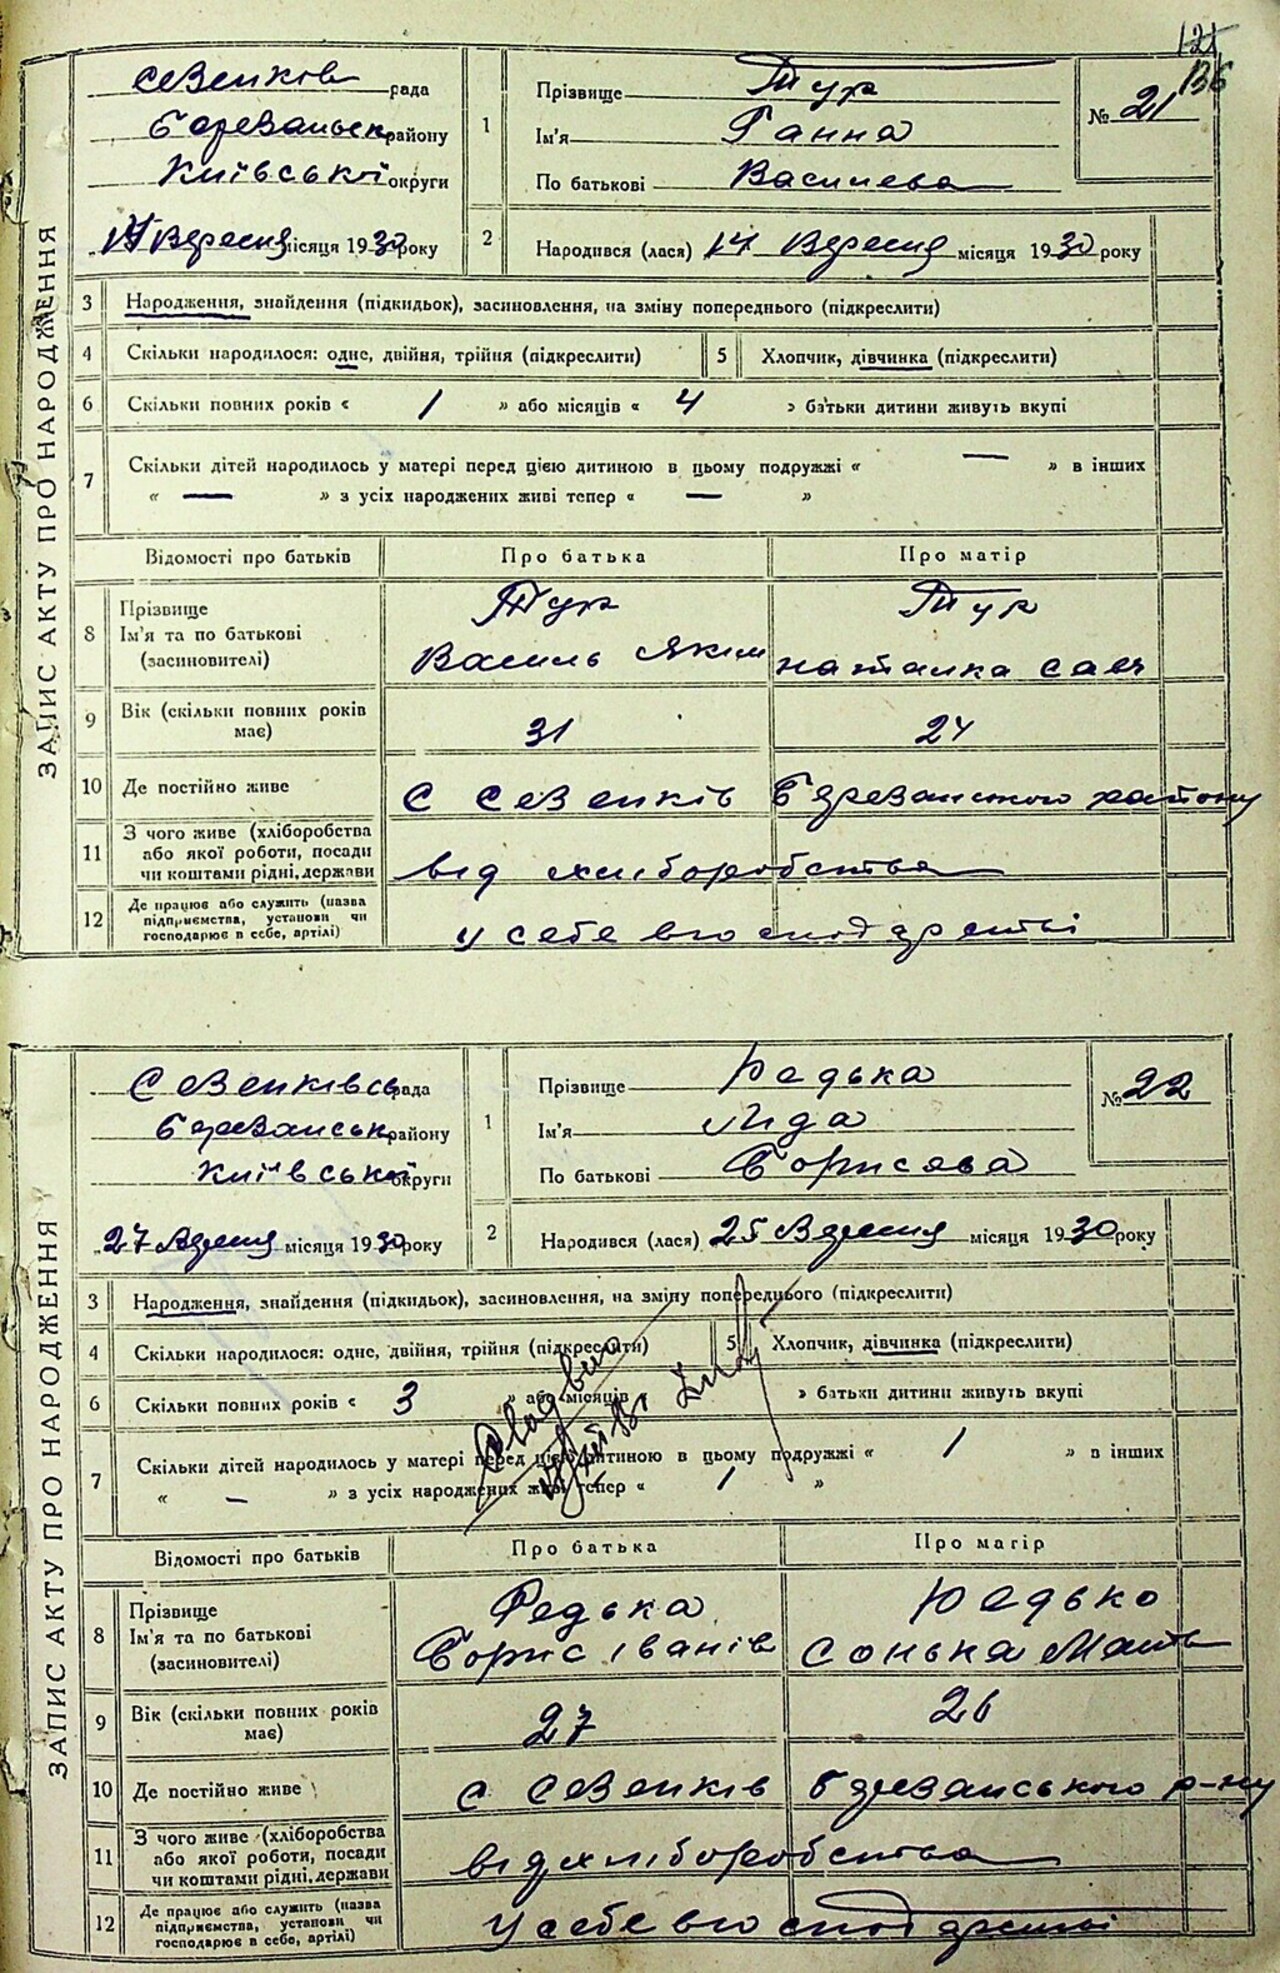 136
ЗАПИС АКТУ ПРО НАРОДЖЕННЯ
Севенков рада
Березанськ району
Київської округи
1
Прізвище Тур
Ім'я Ганна
По батькові Василева
№ 21
Вересня місяця 1930 року
2
Народився (лася) 14 Вересня місяця 1930 року
3 Народження, знайдення (підкидьок), засиновлення, на зміну попереднього (підкреслити)
4 Скільки народилося: одне, двійня, трійня (підкреслити) 5 Хлопчик, дівчинка (підкреслити)
6 Скільки повних років « 1 » або місяців « 4 » батьки дитини живуть вкупі
7 Скільки дітей народилось у матері перед цією дитиною в цьому подружжі « — » в інших
« — » з усіх народжених живі тепер « — »
Відомості про батьків Про батька Про матір
8 Прізвище Тур Тур
Ім'я та по батькові
(засиновителі) Василь Яким Наталка Сав
9 Вік (скільки повних років має) 31 24
10 Де постійно живе с Севенків Березанського району
11 З чого живе (хліборобства
або якої роботи, посади
чи коштами рідні, держави від хліборобства
12 Де працює або служить (назва
підприємства, установи чи
господарює в себе, артілі) у себе в господарстві
ЗАПИС АКТУ ПРО НАРОДЖЕННЯ
Севенківсь рада
Березанськ району
Київської округи
1
Прізвище Редька
Ім'я Лида
По батькові Борисова
№ 22
27 Вересня місяця 1930 року
2
Народився (лася) 25 Вересня місяця 1930 року
3 Народження, знайдення (підкидьок), засиновлення, на зміну попереднього (підкреслити)
4 Скільки народилося: одне, двійня, трійня (підкреслити) 5 Хлопчик, дівчинка (підкреслити)
6 Скільки повних років « 3 » або місяців « » батьки дитини живуть вкупі
7 Скільки дітей народилось у матері перед цією дитиною в цьому подружжі « 1 » в інших
« — » з усіх народжених живі тепер « 1 »
Відомості про батьків Про батька Про матір
8 Прізвище Редька Редько
Ім'я та по батькові
(засиновителі) Борис Іванів Сонька Матв
9 Вік (скільки повних років має) 27 26
10 Де постійно живе с Севенків Березанського р-ну
11 З чого живе (хліборобства
або якої роботи, посади
чи коштами рідні, держави від хліборобства
12 Де працює або служить (назва
підприємства, установи чи
господарює в себе, артілі) у себе в господарстві